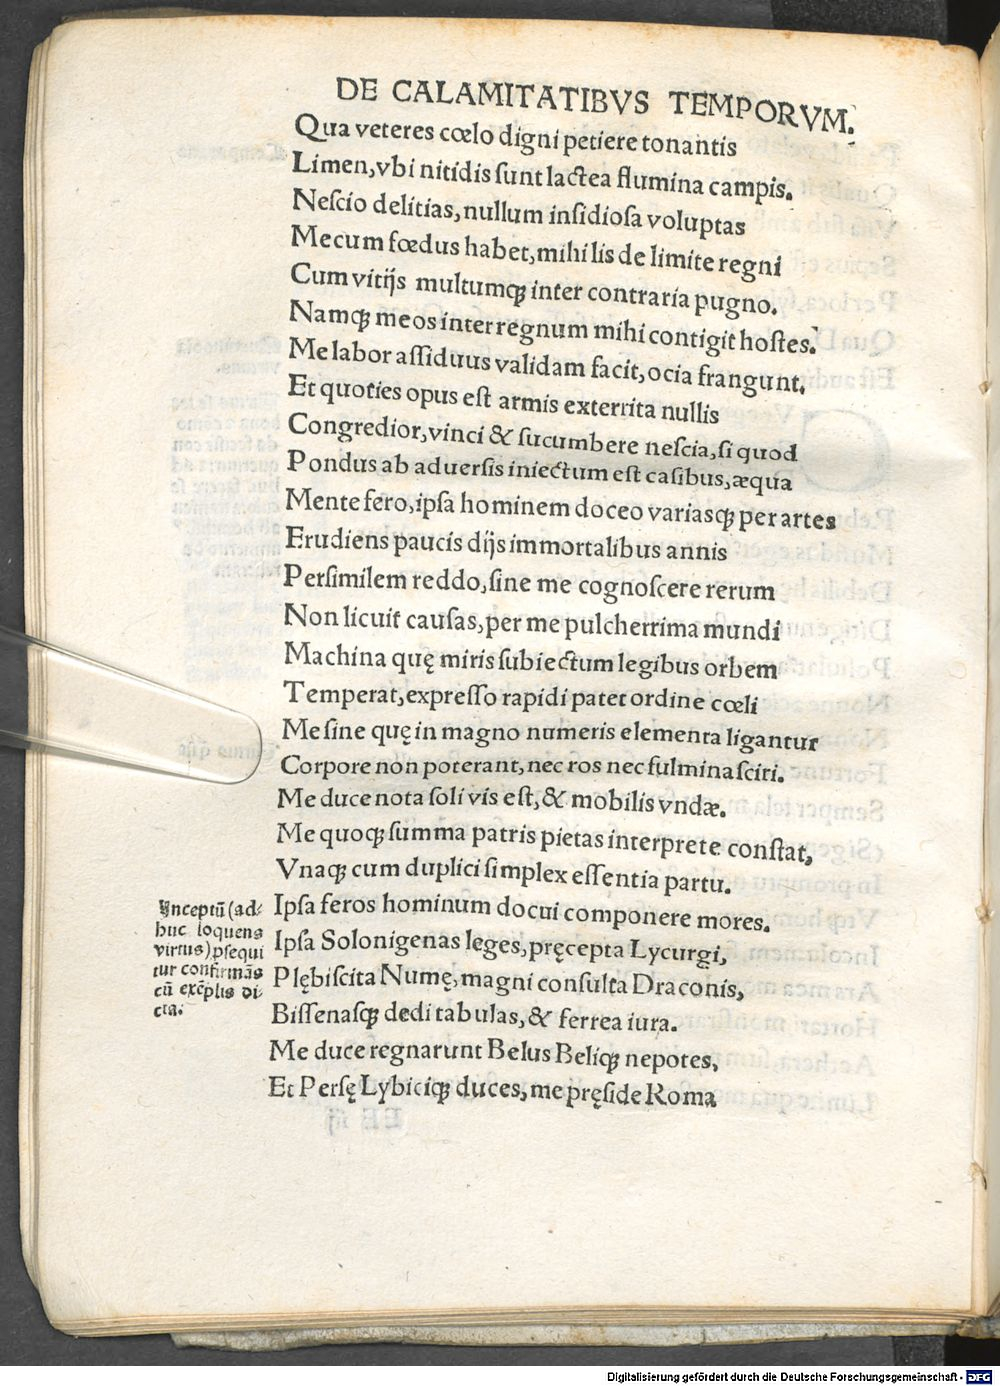 DE CALAMITATIBVS TEMPORVM.
Qua veteres cœlo digni petiere tonantis
Limen, vbi nitidis sunt lactea flumina campis.
Nescio delitias, nullum insidiosa voluptas
Mecum fœdus habet, mihi lis de limite regni
Cum vitijs multumqꝫ inter contraria pugno.
Namqꝫ meos inter regnum mihi contigit hostes.
Me labor assiduus validam facit, ocia frangunt.
Et quoties opus est armis exterrita nullis
Congredior, vinci & sucumbere nescia, si quod
Pondus ab aduersis iniectum est casibus, æqua
Mente fero, ipsa hominem doceo variasqꝫ per artes
Erudiens paucis dijs immortalibus annis
Persimilem reddo, sine me cognoscere rerum
Non licuit causas, per me pulcherrima mundi
Machina quę miris subiectum legibus orbem
Temperat, expresso rapidi patet ordine cœli
Me sine quę in magno numeris elementa ligantur
Corpore non poterant, nec ros nec fulmina sciri.
Me duce nota soli vis est, & mobilis vndæ.
Me quoqꝫ summa patris pietas interprete constat,
Vnaqꝫ cum duplici simplex essentia partu.
Ipsa feros hominum docui componere mores.
Ipsa Solonigenas leges, pręcepta Lycurgi,
Plębiscita Numę, magni consulta Draconis,
Bissenasqꝫ dedi tabulas, & ferrea iura.
Me duce regnarunt Belus Beliqꝫ nepotes,
Et Persę Lybiciqꝫ duces, me pręside Roma
Inceptū (ad-
huc loquens
virtus) ꝓsequi
tur confirmās
cū exēplis di-
cta.
Digitalisierung gefördert durch die Deutsche Forschungsgemeinschaft - DFG